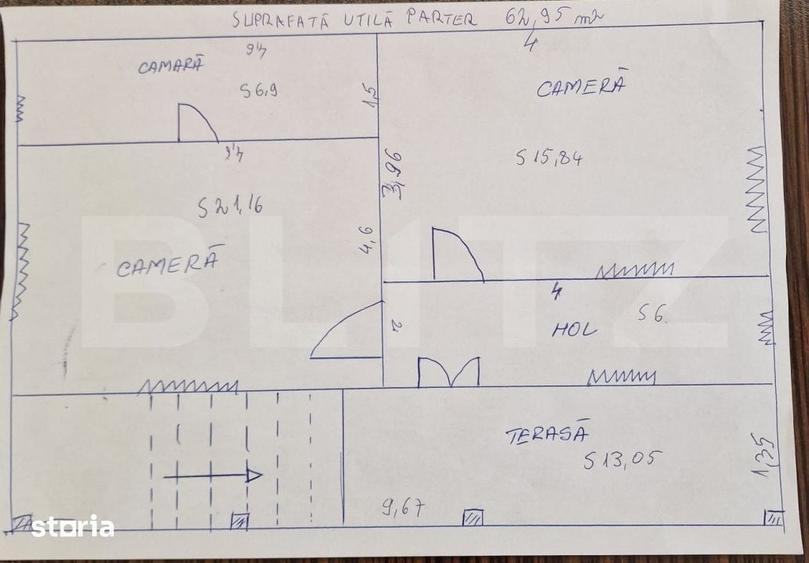 SUPRAFATĂ UTILĂ PARTER 62,95 m2
4,6
4
CAMARĂ
S 6,9
1,5
CAMERĂ
S 15,84
4,6
3,96
S 21,16
4,6
CAMERĂ
4
S 6
HOL
2
TERASĂ
S 13,05
1,35
9,67
BLITZ
storia